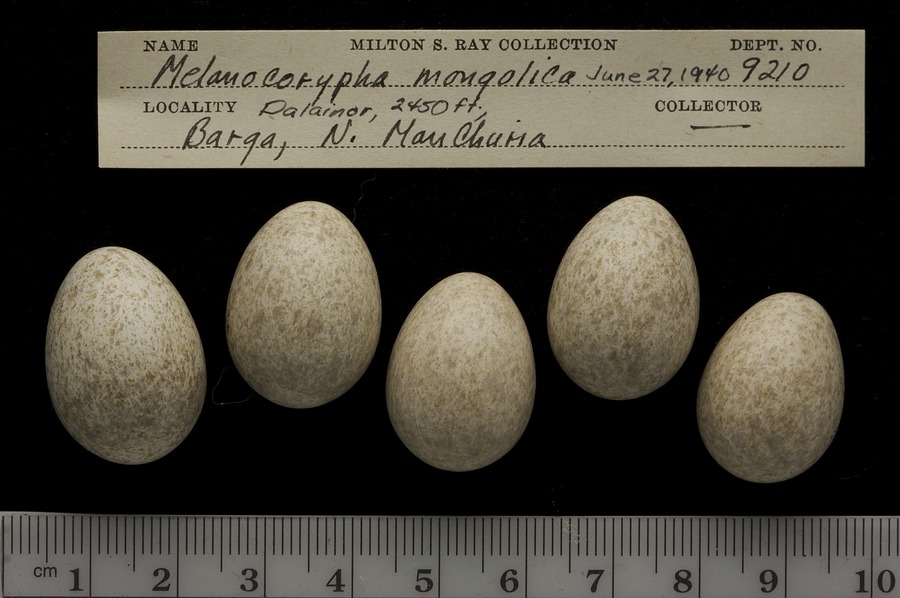 NAME MILTON S. RAY COLLECTION DEPT. NO.
Melanocorypha mongolica June 27, 1940 9210
LOCALITY Dalainor, 2450 ft. COLLECTOR
Barga, N. Manchuria
cm 1 2 3 4 5 6 7 8 9 10